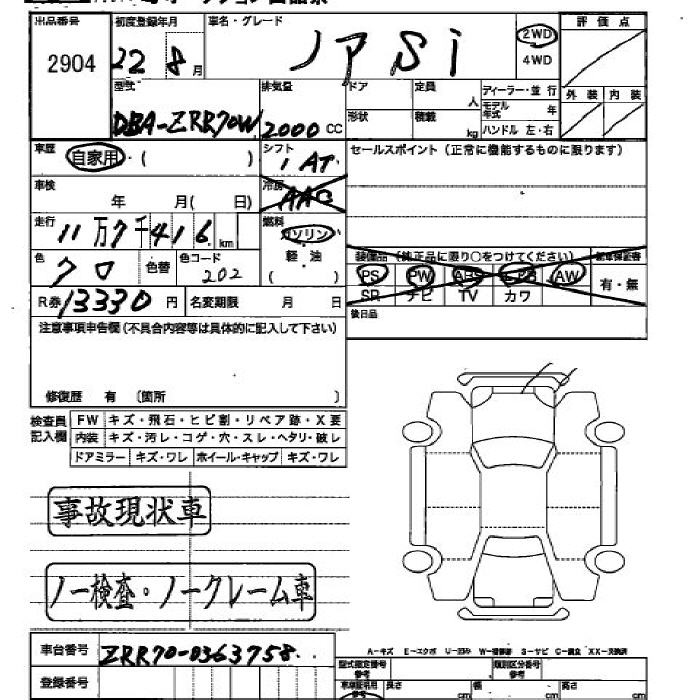 出品番号 初度登録年月 車名・グレード 2WD 評価点
2904 22 8月 ノア Si 4WD
型式 排気量 ドア 定員 人 ディーラー・並行 外装 内装
DBA-ZRR70W 2000CC 形状 積載 kg モデル年式 年
ハンドル 左・右
車歴 自家用・( ) シフト 1 AT セールスポイント(正常に機能するものに限ります)
車検 年 月( 日) 冷房 AAC
走行 11万7千416km 燃料 ガソリン
色 クロ 色替 色コード 202 軽油 ( ) 装備品(純正品に限り○をつけてください)
PS PW ABS AW 有・無
R券 13330円 名変期限 月 日 SR ナビ TV カワ
注意事項申告欄(不具合内容等は具体的に記入して下さい) 後日品
修復歴 有 〔箇所 〕
検査員 FW キズ・飛石・ヒビ割・リペア跡・X要
記入欄 内装 キズ・汚レ・コゲ・穴・スレ・ヘタリ・破レ
ドアミラー キズ・ワレ ホイール・キャップ キズ・ワレ
事故現状車
ノー検査・ノークレーム車
A-キズ E-エクボ U-凹み S-サビ C-腐食 XX-交換済
車台番号 ZRR70-0363758 型式指定番号 参考 類別区分番号 参考
登録番号 長さ cm 幅 cm 高さ cm